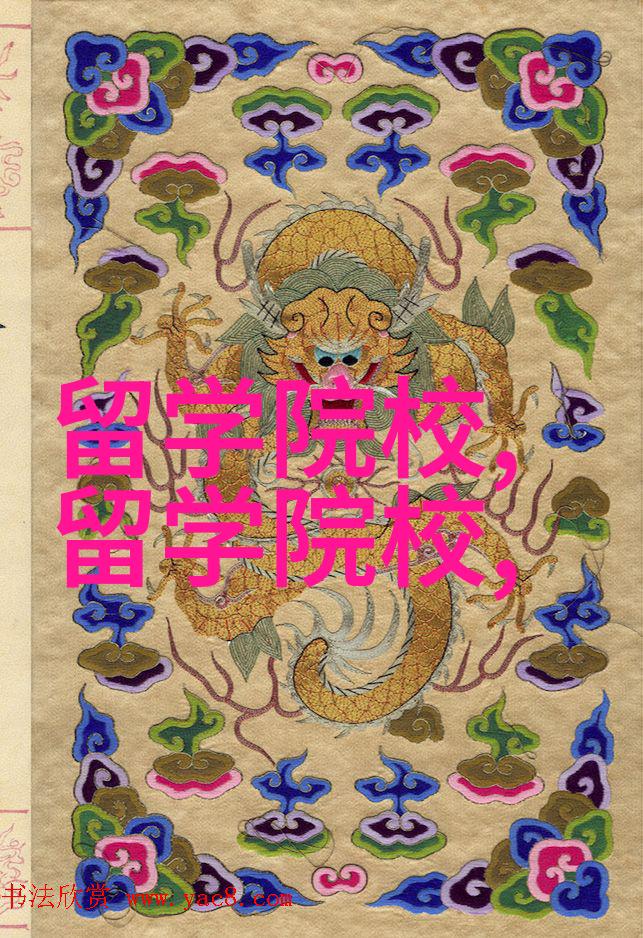 留学院校,
留学院校,
书法欣赏 www.yac8.com